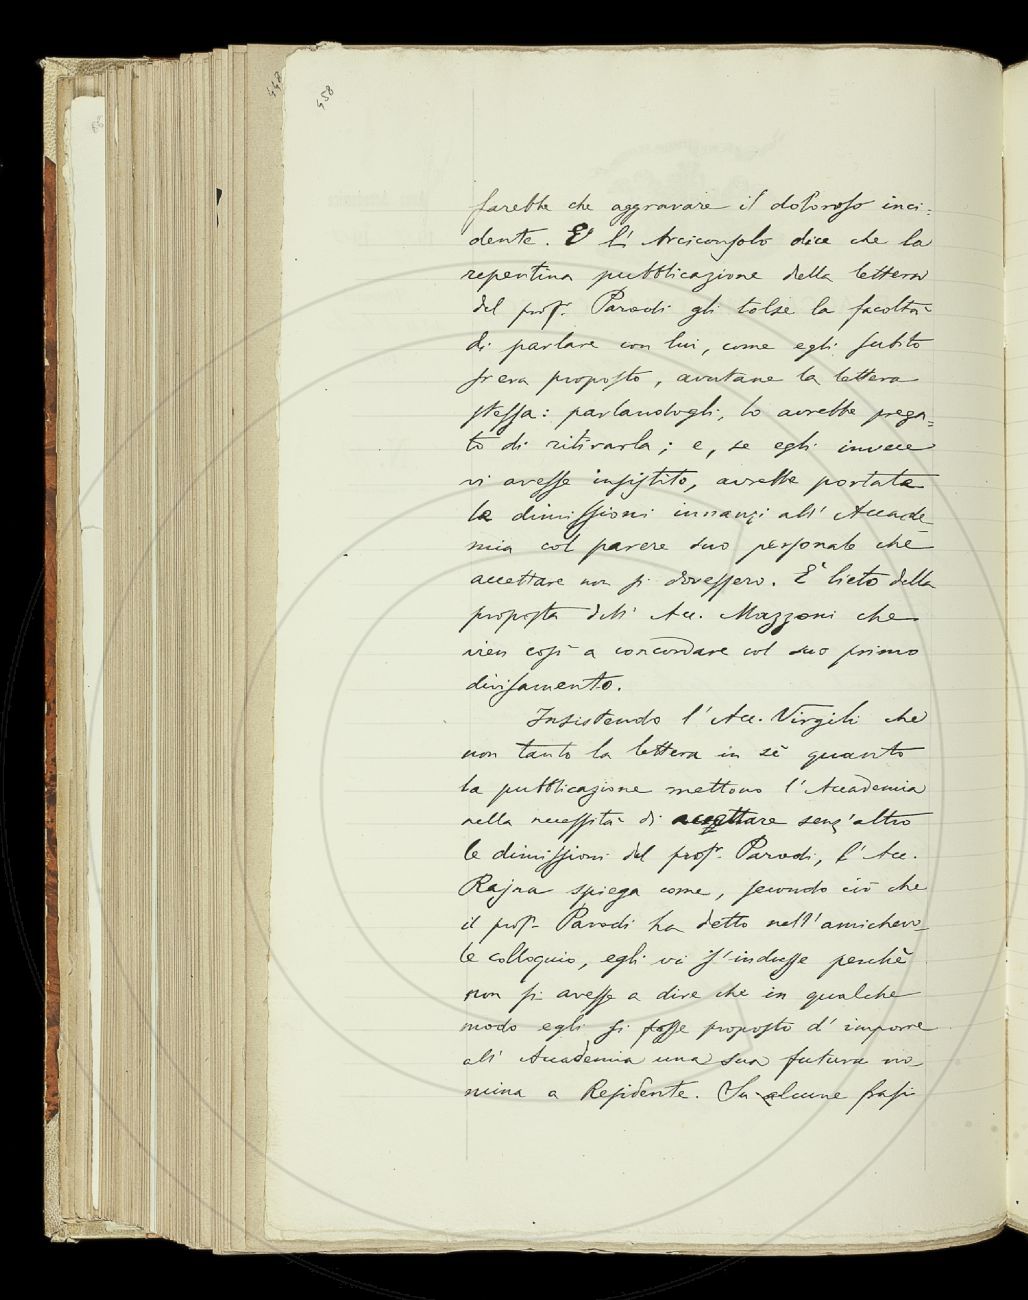 448
458
farebbe che aggravare il doloroso inci=
dente. E l'Arciconsolo dice che la
repentina pubblicazione della lettera
del prof. Parodi gli tolse la facoltà
di parlare con lui, come egli subito
s'era proposto, avutane la lettera
stessa: parlandogli, lo avrebbe prega=
to di ritirarla; e, se egli invece
vi avesse insistito, avrebbe portata
le dimissioni innanzi all'Accade
mia col parere suo personale che
accettare non si dovessero. È lieto della
proposta dell'Acc. Mazzoni che
vien così a concordare col suo primo
divisamento.
Insistendo l'Acc. Virgili che
non tanto la lettera in sè quanto
la pubblicazione mettono l'Accademia
nella necessità di accettare senz'altro
le dimissioni del prof. Parodi, l'Acc.
Rajna spiega come, secondo ciò che
il prof. Parodi ha detto nell'amichevo-
le colloquio, egli vi s'indusse perchè
non si avesse a dire che in qualche
modo egli si fosse proposto d'imporre
all'Accademia una sua futura no-
mina a Residente. Su alcune frasi